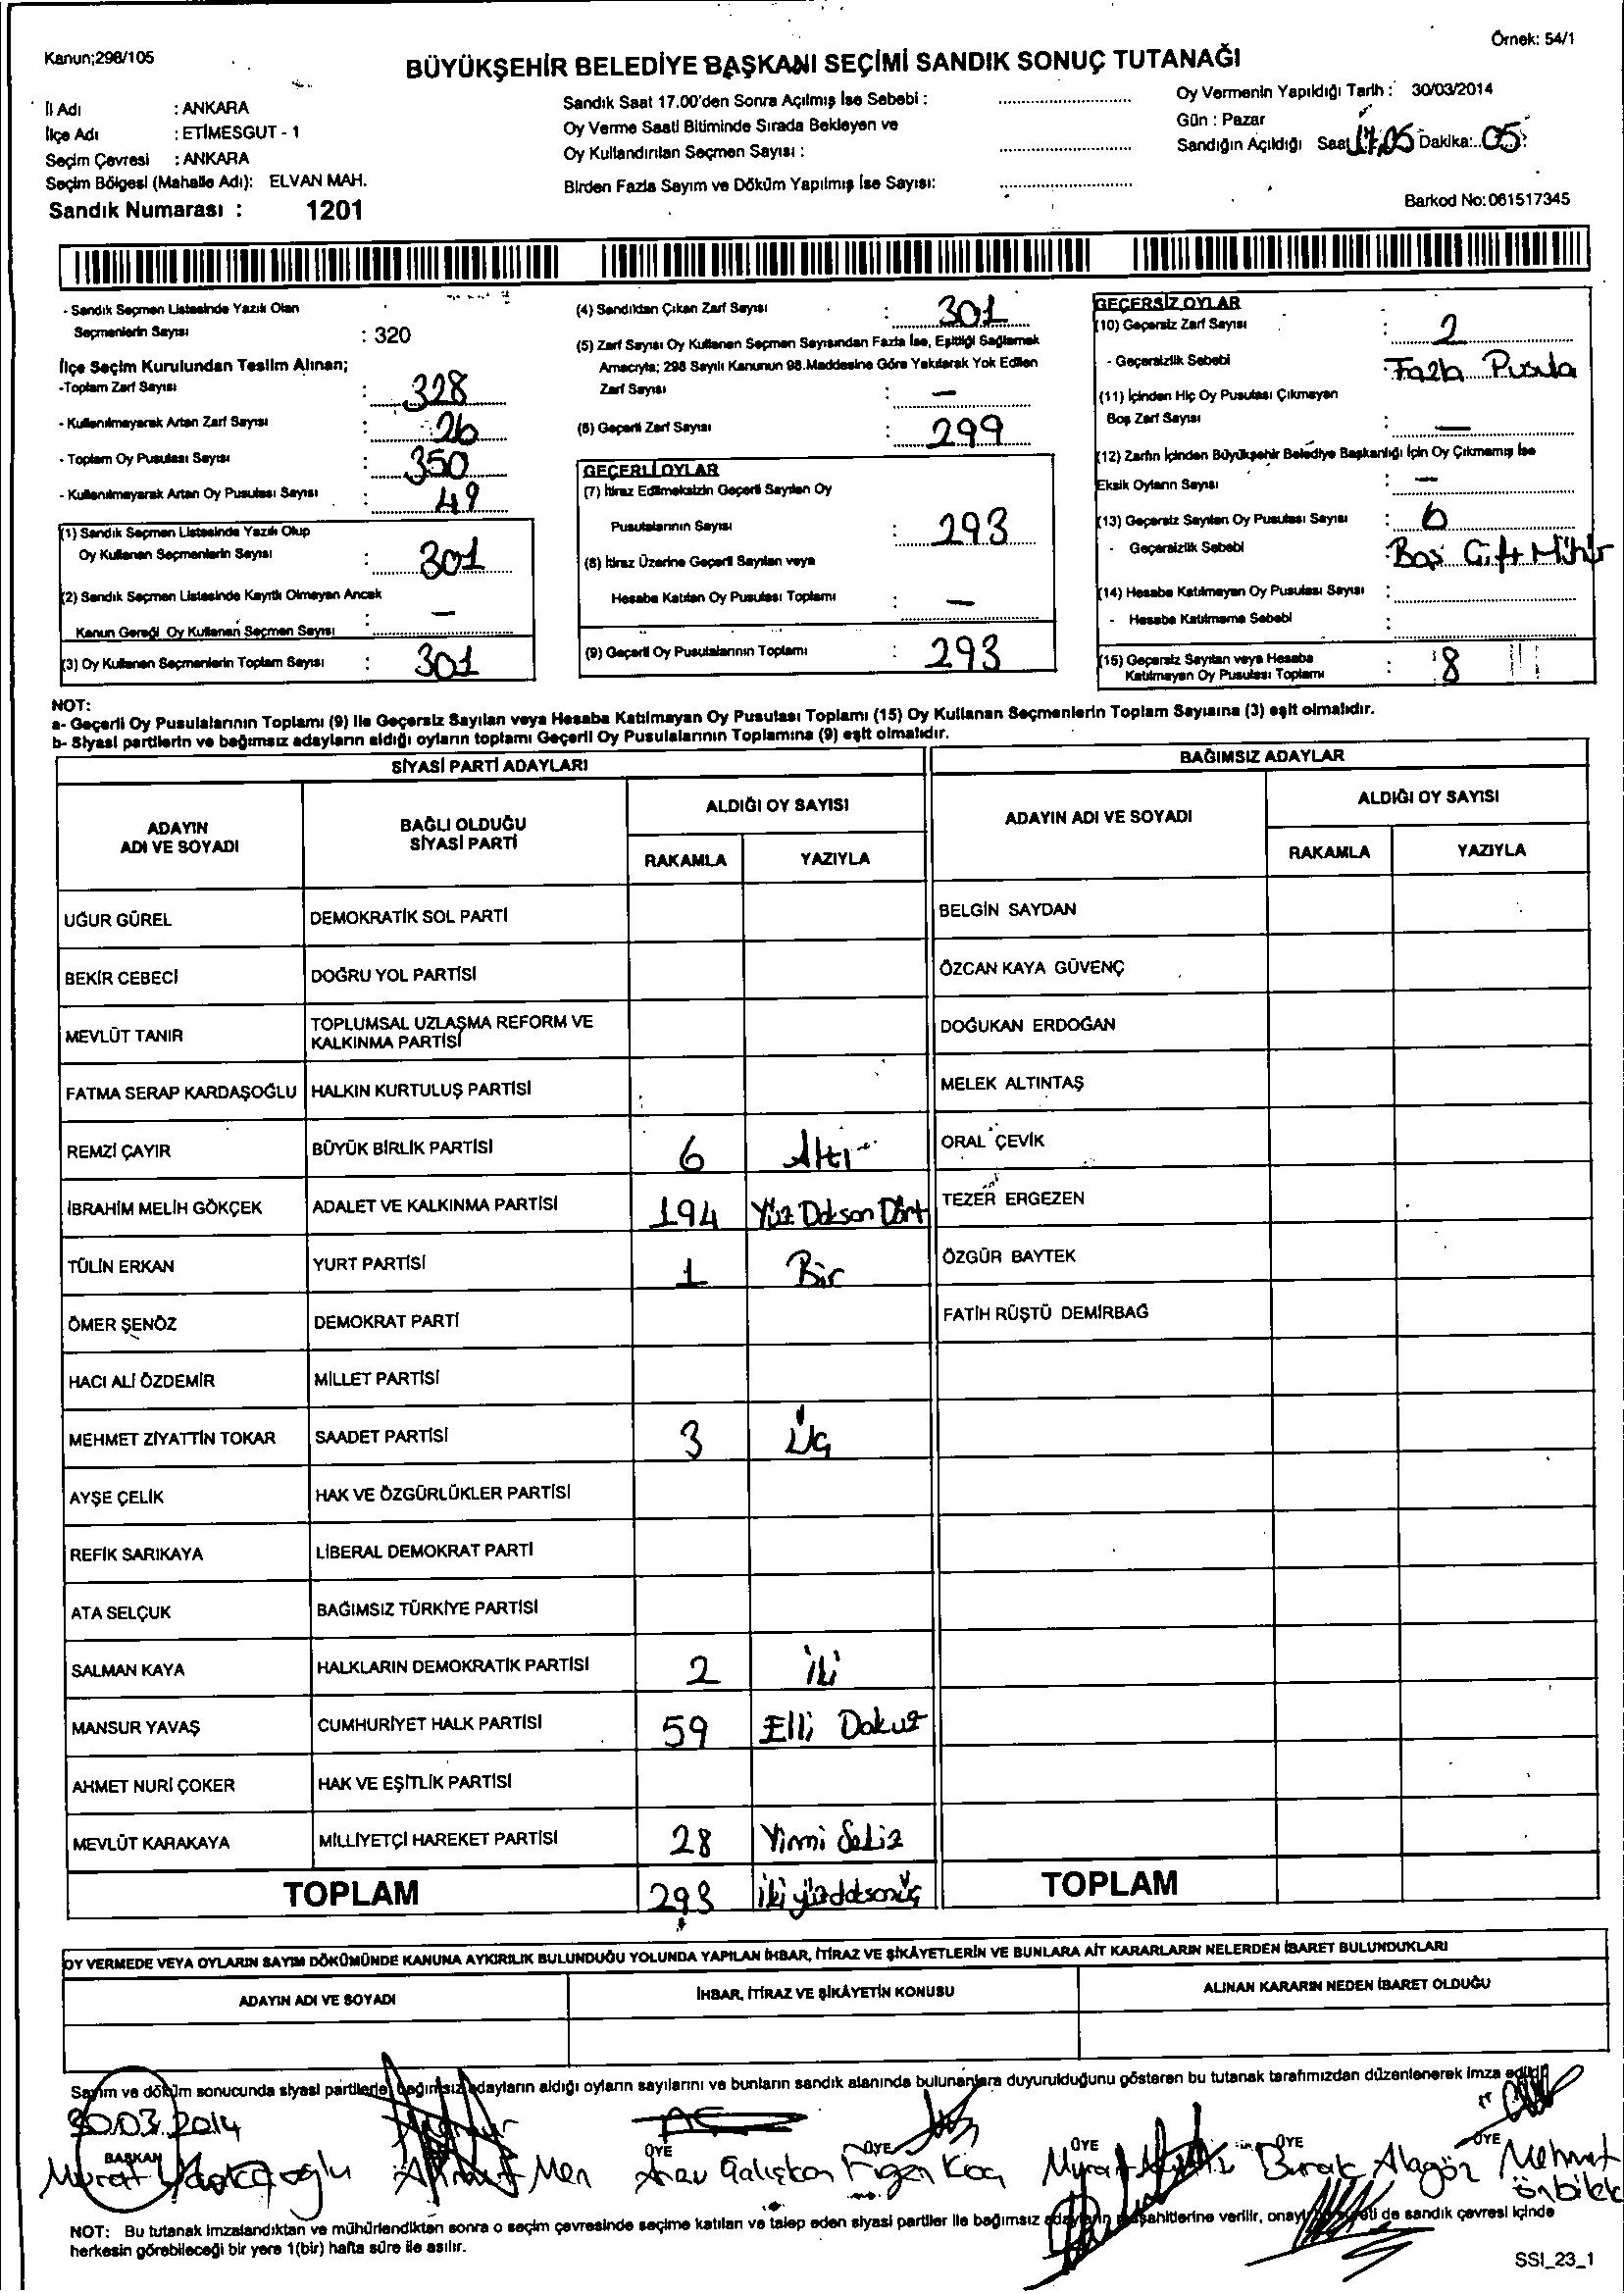 Kanun;298/105
Örnek: 54/1
BÜYÜKŞEHİR BELEDİYE BAŞKANI SEÇİMİ SANDIK SONUÇ TUTANAĞI
İl Adı : ANKARA
İlçe Adı : ETİMESGUT - 1
Seçim Çevresi : ANKARA
Seçim Bölgesi (Mahalle Adı): ELVAN MAH.
Sandık Numarası : 1201
Sandık Saat 17.00'den Sonra Açılmış İse Sebebi :
Oy Verme Saati Bitiminde Sırada Bekleyen ve
Oy Kullandırılan Seçmen Sayısı :
Birden Fazla Sayım ve Döküm Yapılmış İse Sayısı:
Oy Vermenin Yapıldığı Tarih : 30/03/2014
Gün : Pazar
Sandığın Açıldığı Saat 17,05 Dakika: 05
Barkod No: 061517345
- Sandık Seçmen Listesinde Yazılı Olan
Seçmenlerin Sayısı : 320
İlçe Seçim Kurulundan Teslim Alınan;
-Toplam Zarf Sayısı : 328
- Kullanılmayarak Artan Zarf Sayısı : 26
- Toplam Oy Pusulası Sayısı : 350
- Kullanılmayarak Artan Oy Pusulası Sayısı : 49
(1) Sandık Seçmen Listesinde Yazılı Olup
Oy Kullanan Seçmenlerin Sayısı : 301
(2) Sandık Seçmen Listesinde Kayıtlı Olmayan Ancak
Kanun Gereği Oy Kullanan Seçmen Sayısı : —
(3) Oy Kullanan Seçmenlerin Toplam Sayısı : 301
(4) Sandıktan Çıkan Zarf Sayısı : 301
(5) Zarf Sayısı Oy Kullanan Seçmen Sayısından Fazla İse, Eşitliği Sağlamak
Amacıyla; 298 Sayılı Kanunun 98.Maddesine Göre Yakılarak Yok Edilen
Zarf Sayısı : —
(6) Geçerli Zarf Sayısı : 299
GEÇERLİ OYLAR
(7) İtiraz Edilmeksizin Geçerli Sayılan Oy
Pusulalarının Sayısı : 293
(8) İtiraz Üzerine Geçerli Sayılan veya
Hesaba Katılan Oy Pusulası Toplamı : —
(9) Geçerli Oy Pusulalarının Toplamı : 293
GEÇERSİZ OYLAR
(10) Geçersiz Zarf Sayısı : 2
- Geçersizlik Sebebi : Fazla Pusula
(11) İçinden Hiç Oy Pusulası Çıkmayan
Boş Zarf Sayısı : —
(12) Zarfın İçinden Büyükşehir Belediye Başkanlığı İçin Oy Çıkmamış İse
Eksik Oyların Sayısı : —
(13) Geçersiz Sayılan Oy Pusulası Sayısı : 6
- Geçersizlik Sebebi : Boş Çift Mühür
(14) Hesaba Katılmayan Oy Pusulası Sayısı :
- Hesaba Katılmama Sebebi :
(15) Geçersiz Sayılan veya Hesaba
Katılmayan Oy Pusulası Toplamı : 8
NOT:
a- Geçerli Oy Pusulalarının Toplamı (9) ile Geçersiz Sayılan veya Hesaba Katılmayan Oy Pusulası Toplamı (15) Oy Kullanan Seçmenlerin Toplam Sayısına (3) eşit olmalıdır.
b- Siyasi partilerin ve bağımsız adayların aldığı oyların toplamı Geçerli Oy Pusulalarının Toplamına (9) eşit olmalıdır.
SİYASİ PARTİ ADAYLARI
BAĞIMSIZ ADAYLAR
ADAYIN ADI VE SOYADI
BAĞLI OLDUĞU SİYASİ PARTİ
ALDIĞI OY SAYISI
RAKAMLA YAZIYLA
ADAYIN ADI VE SOYADI
ALDIĞI OY SAYISI
RAKAMLA YAZIYLA
UĞUR GÜREL DEMOKRATİK SOL PARTİ BELGİN SAYDAN
BEKİR CEBECİ DOĞRU YOL PARTİSİ ÖZCAN KAYA GÜVENÇ
MEVLÜT TANIR TOPLUMSAL UZLAŞMA REFORM VE KALKINMA PARTİSİ DOĞUKAN ERDOĞAN
FATMA SERAP KARDAŞOĞLU HALKIN KURTULUŞ PARTİSİ MELEK ALTINTAŞ
REMZİ ÇAYIR BÜYÜK BİRLİK PARTİSİ 6 Altı ORAL ÇEVİK
İBRAHİM MELİH GÖKÇEK ADALET VE KALKINMA PARTİSİ 194 Yüz Doksan Dört TEZER ERGEZEN
TÜLİN ERKAN YURT PARTİSİ 1 Bir ÖZGÜR BAYTEK
ÖMER ŞENÖZ DEMOKRAT PARTİ FATİH RÜŞTÜ DEMİRBAĞ
HACI ALİ ÖZDEMİR MİLLET PARTİSİ
MEHMET ZİYATTİN TOKAR SAADET PARTİSİ 3 Üç
AYŞE ÇELİK HAK VE ÖZGÜRLÜKLER PARTİSİ
REFİK SARIKAYA LİBERAL DEMOKRAT PARTİ
ATA SELÇUK BAĞIMSIZ TÜRKİYE PARTİSİ
SALMAN KAYA HALKLARIN DEMOKRATİK PARTİSİ 2 İki
MANSUR YAVAŞ CUMHURİYET HALK PARTİSİ 59 Elli Dokuz
AHMET NURİ ÇOKER HAK VE EŞİTLİK PARTİSİ
MEVLÜT KARAKAYA MİLLİYETÇİ HAREKET PARTİSİ 28 Yirmi Sekiz
TOPLAM 293 iki yüz doksan üç TOPLAM
OY VERMEDE VEYA OYLARIN SAYIM DÖKÜMÜNDE KANUNA AYKIRILIK BULUNDUĞU YOLUNDA YAPILAN İHBAR, İTİRAZ VE ŞİKÂYETLERİN VE BUNLARA AİT KARARLARIN NELERDEN İBARET BULUNDUKLARI
ADAYIN ADI VE SOYADI İHBAR, İTİRAZ VE ŞİKÂYETİN KONUSU ALINAN KARARIN NEDEN İBARET OLDUĞU
Sayım ve döküm sonucunda siyasi partilerle bağımsız adayların aldığı oyların sayılarını ve bunların sandık alanında bulunanlara duyurulduğunu gösteren bu tutanak tarafımızdan düzenlenerek imza edildi.
30.03.2014
BAŞKAN ÜYE ÜYE ÜYE ÜYE ÜYE
Murat Ahmet Men Çalışkan Figen Koç Murat Burak Alagöz Mehmet
NOT: Bu tutanak imzalandıktan ve mühürlendikten sonra o seçim çevresinde seçime katılan ve talep eden siyasi partiler ile bağımsız adayların müşahitlerine verilir, onaylı bir sureti de sandık çevresi içinde
herkesin görebileceği bir yere 1(bir) hafta süre ile asılır.
SSI_23_1